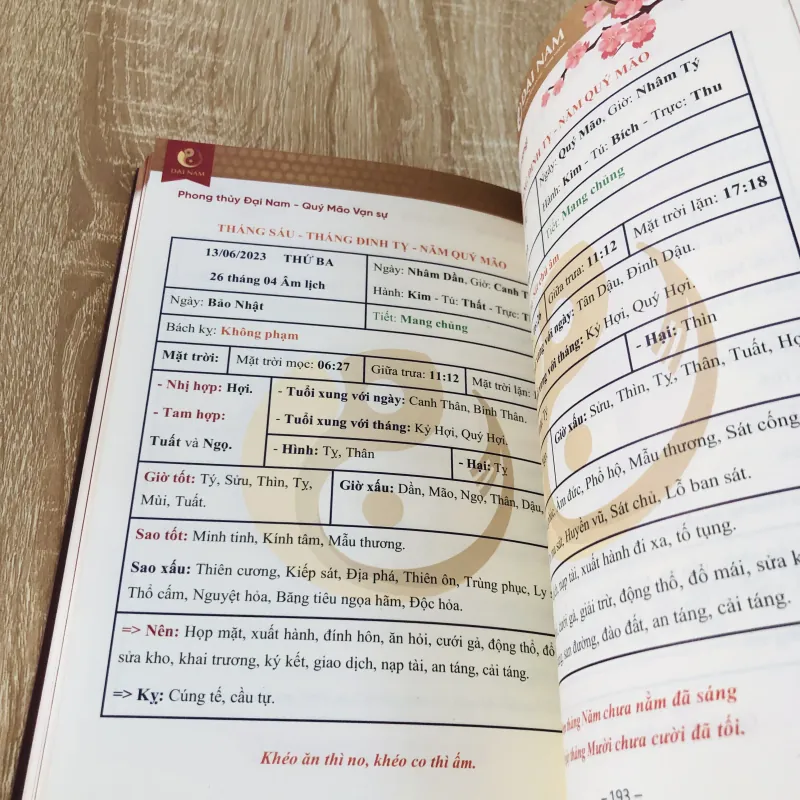 ĐẠI NAM
Phong thủy Đại Nam - Quý Mão Vạn sự
THÁNG SÁU - THÁNG ĐINH TỴ - NĂM QUÝ MÃO
13/06/2023 THỨ BA
26 tháng 04 Âm lịch
Ngày: Nhâm Dần, Giờ: Canh
Hành: Kim - Tú: Thất - Trực:
Ngày: Bảo Nhật
Tiết: Mang chủng
Bách kỵ: Không phạm
Mặt trời: Mặt trời mọc: 06:27 Giữa trưa: 11:12 Mặt trời lặn:
- Nhị hợp: Hợi.
- Tam hợp:
Tuất và Ngọ.
- Tuổi xung với ngày: Canh Thân, Bính Thân.
- Tuổi xung với tháng: Kỷ Hợi, Quý Hợi.
- Hình: Tỵ, Thân
- Hại: Tỵ
Giờ tốt: Tý, Sửu, Thìn, Tỵ,
Mùi, Tuất.
Giờ xấu: Dần, Mão, Ngọ, Thân, Dậu,
Sao tốt: Minh tinh, Kính tâm, Mẫu thương.
Sao xấu: Thiên cương, Kiếp sát, Địa phá, Thiên ôn, Trùng phục, Ly
Thổ cấm, Nguyệt hỏa, Băng tiêu ngọa hãm, Độc hỏa.
=> Nên: Họp mặt, xuất hành, đính hôn, ăn hỏi, cưới gả, động thổ, đổ
sửa kho, khai trương, ký kết, giao dịch, nạp tài, an táng, cải táng.
=> Kỵ: Cúng tế, cầu tự.
Khéo ăn thì no, khéo co thì ấm.
ĐẠI NAM
ĐINH TỴ - NĂM QUÝ MÃO
Ngày: Quý Mão, Giờ: Nhâm Tý
Hành: Kim - Tú: Bích - Trực: Thu
Tiết: Mang chủng
Giữa trưa: 11:12 Mặt trời lặn: 17:18
với ngày: Tân Dậu, Đinh Dậu.
với tháng: Kỷ Hợi, Quý Hợi.
- Hại: Thìn
Giờ xấu: Sửu, Thìn, Tỵ, Thân, Tuất,
Âm đức, Phổ hộ, Mẫu thương, Sát cống,
Huyền vũ, Sát chủ, Lỗ ban sát.
nạp tài, xuất hành đi xa, tố tụng.
cưới gả, giải trừ, động thổ, đổ mái, sửa
đào đất, an táng, cải táng.
tháng Năm chưa nằm đã sáng
tháng Mười chưa cười đã tối.
– 193 –